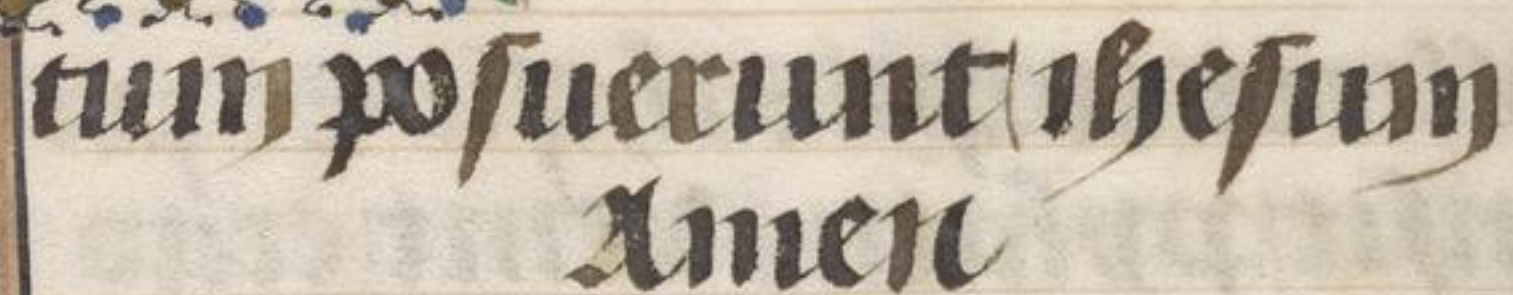 tum posuerunt ihesum
Amen